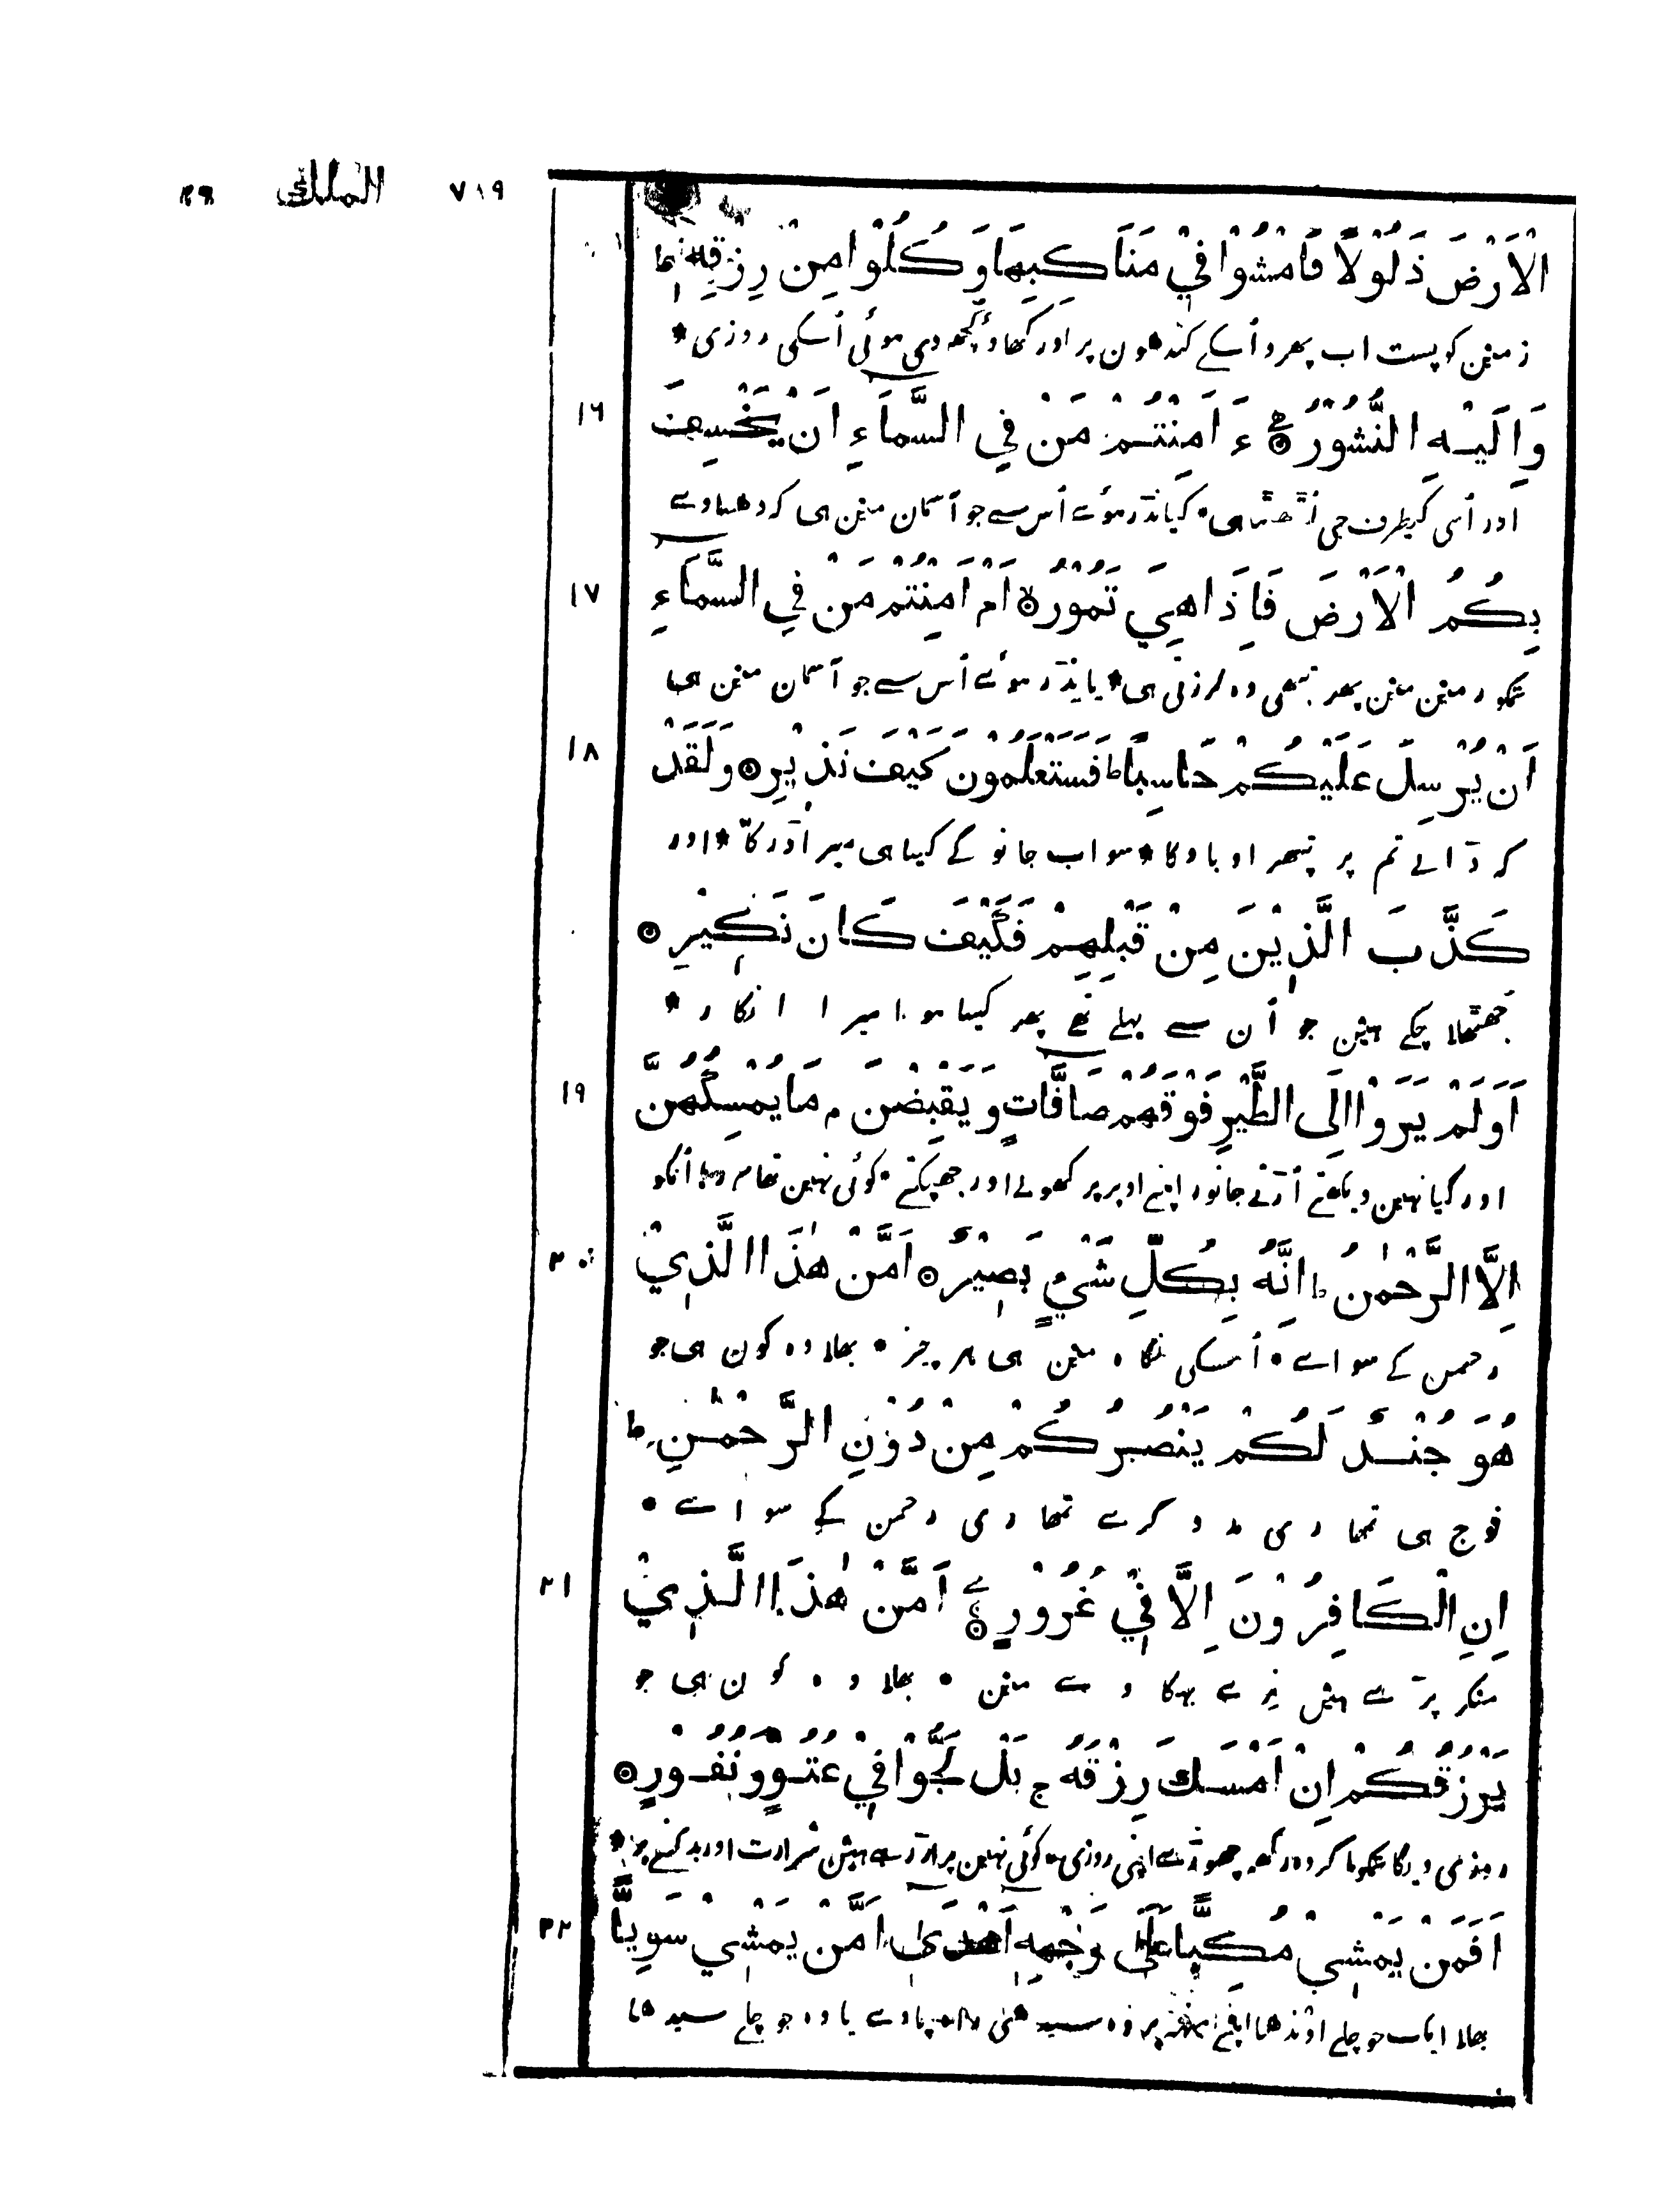 ٧١٩ الملك ٢٩
الْاَرْضَ ذَلُوْلًا فَامْشُوْا فِيْ مَنَاكِبِهَا وَ كُلُوْا مِنْ رِزْقِهٖ ط
زمین کو پست اب پھرو اُسکے کندھون پر اور کھاو کُچھ دی ہوئی اُسکی روزی *
١٦ وَاِلَيْهِ النُّشُوْرُ ۞ ءَ اَمِنْتُمْ مَنْ فِي السَّمَآءِ اَنْ يَّخْسِفَ
اور اُسی کیطرف جی اُٹھنا ہی * کیا نڈر ہوئے اُس سے جو آسمان مین ہی کہ دھساوے
١٧ بِكُمُ الْاَرْضَ فَاِذَا هِيَ تَمُوْرُ ۞ اَمْ اَمِنْتُمْ مَنْ فِي السَّمَآءِ
تمکو زمین مین پھر تبھی وہ لرزتی ہی * یا نڈر ہوئے اُس سے جو آسمان مین ہی
١٨ اَنْ يُرْسِلَ عَلَيْكُمْ حَاصِبًا ط فَسَتَعْلَمُوْنَ كَيْفَ نَذِيْرِ ۞ وَلَقَدْ
کہ ڈالے تم پر پتھراو باو کا * سو اب جانو گے کیسا ہی میرا ڈر کا * اور
كَذَّبَ الَّذِيْنَ مِنْ قَبْلِهِمْ فَكَيْفَ كَانَ نَكِيْرِ ۞
جھٹھلا چکے ہین جو اُن سے پہلے تھے پھر کیسا ہوا میرا انکار *
١٩ اَوَلَمْ يَرَوْا اِلَى الطَّيْرِ فَوْقَهُمْ صَافَّاتٍ وَّ يَقْبِضْنَ م مَا يُمْسِكُهُنَّ
اور کیا نہین دیکھتے اُڑتے جانور اپنے اوپر پر کھولے اور جھپکتے * کوئی نہین تھام رہا اُنکو
٢٠ اِلَّا الرَّحْمٰنُ ط اِنَّهٗ بِكُلِّ شَيْءٍ بَصِيْرٌ ۞ اَمَّنْ هٰذَا الَّذِيْ
رحمن کے سواے * اُسکی نگاہ مین ہی ہر چیز * بھلا وہ کون ہی جو
هُوَ جُنْدٌ لَّكُمْ يَنْصُرُكُمْ مِنْ دُوْنِ الرَّحْمٰنِ ط
فوج ہی تمھاری مدد کرے تمھاری رحمن کے سواے *
٢١ اِنِ الْكَافِرُوْنَ اِلَّا فِيْ غُرُوْرٍ ۞ اَمَّنْ هٰذَا الَّذِيْ
منکر پڑے ہین نرے بہکاوے مین * بھلا وہ کون ہی جو
يَرْزُقُكُمْ اِنْ اَمْسَكَ رِزْقَهٗ ج بَلْ لَجُّوْا فِيْ عُتُوٍّ وَّ نُفُوْرٍ ۞
روزی دیگا تمکو اگر وہ رکھ چھوڑے اپنی روزی * کوئی نہین پر اڑ رہے ہین شرارت اور بدکنے پر *
٢٢ اَفَمَنْ يَمْشِيْ مُكِبًّا عَلٰى وَجْهِهٖ اَهْدٰى اَمَّنْ يَمْشِيْ سَوِيًّا
بھلا ایک جو چلے اوندھا اپنے مُنھ پر وہ سیدھی راہ پاوے یا وہ جو چلے سیدھا